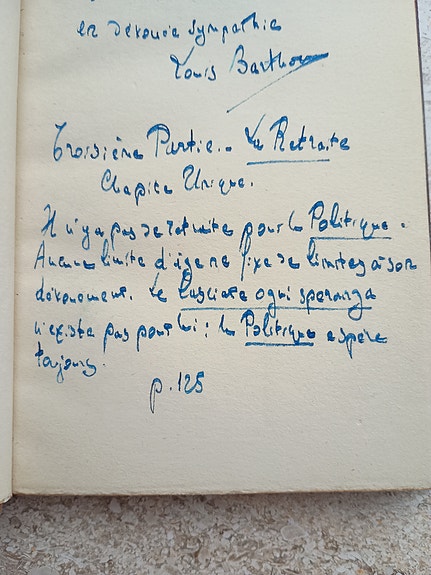 en dévouée sympathie
Louis Barthou
Troisième Partie.- La Retraite
Chapitre Unique.
Il n'y a pas de retraite pour le Politique.
Aucune limite d'âge ne fixe de limites à son
dévouement. Le lasciate ogni speranza
n'existe pas pour lui : le Politique espère
toujours.
p.125